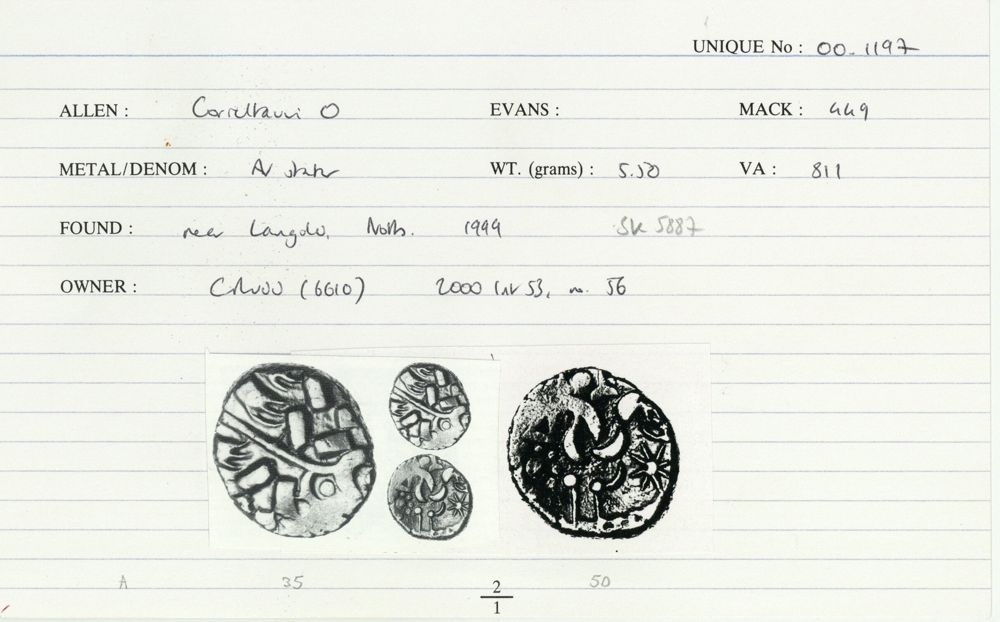 UNIQUE No : 00.1197
ALLEN : Corieltauvi O EVANS : MACK : 449
METAL/DENOM : AV stater WT. (grams) : 5.50 VA : 811
FOUND : near Langdu, Notts. 1999 SK 5887
OWNER : (6610) 2000 Inv 53, no. 56
A 35 2/1 50